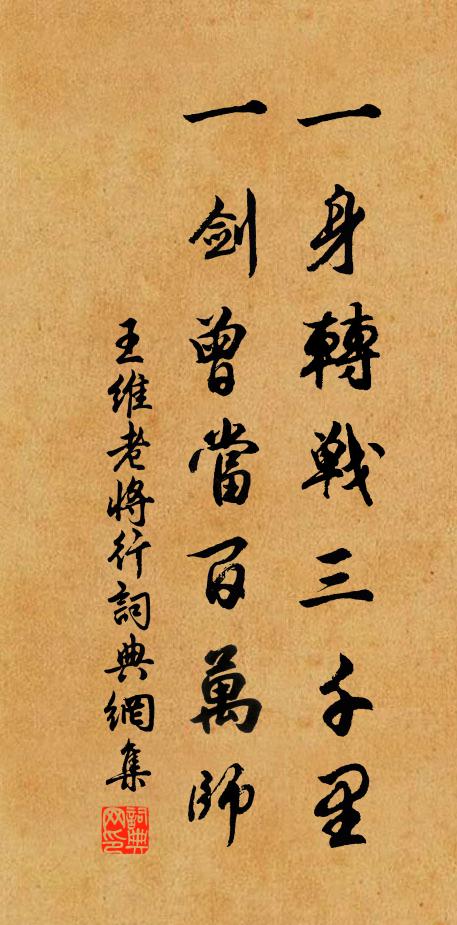 一身轉戰三千里
一劍曾當百萬師
王維老將行詞典網集
詞典网印